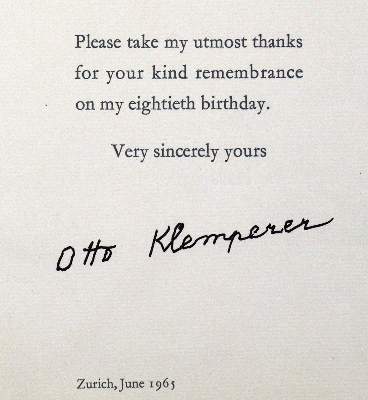 Please take my utmost thanks
for your kind remembrance
on my eightieth birthday.
Very sincerely yours
Otto Klemperer
Zurich, June 1965